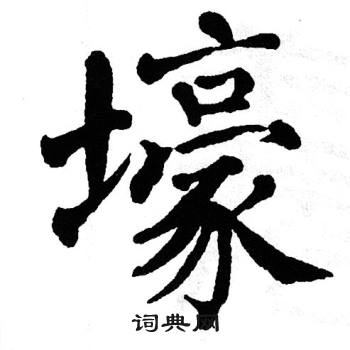 壕
词典网